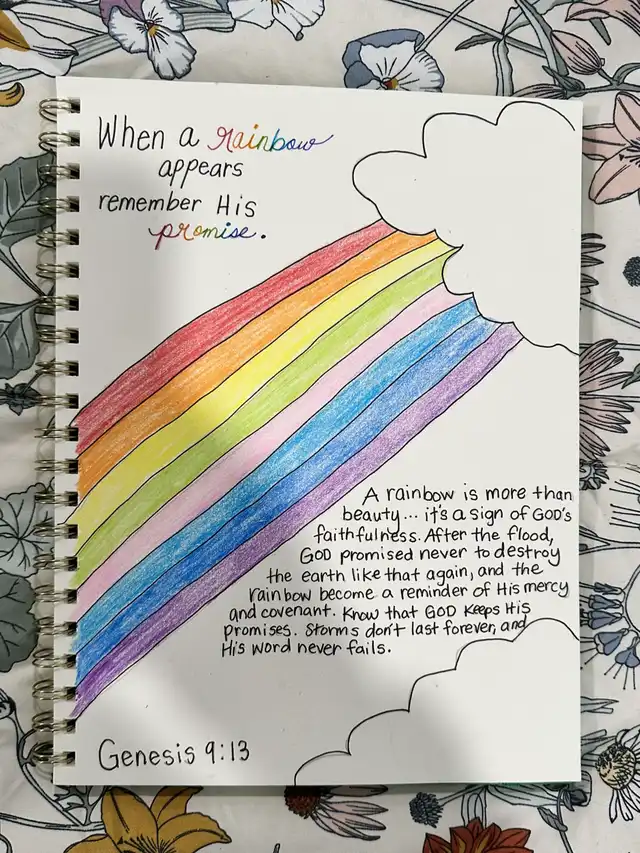 When a rainbow
appears
remember His
promise.
A rainbow is more than
beauty... it's a sign of GOD's
faithfulness. After the flood,
GOD promised never to destroy
the earth like that again, and the
rainbow become a reminder of His mercy
and covenant. Know that GOD keeps His
promises. Storms don't last forever, and
His word never fails.
Genesis 9:13